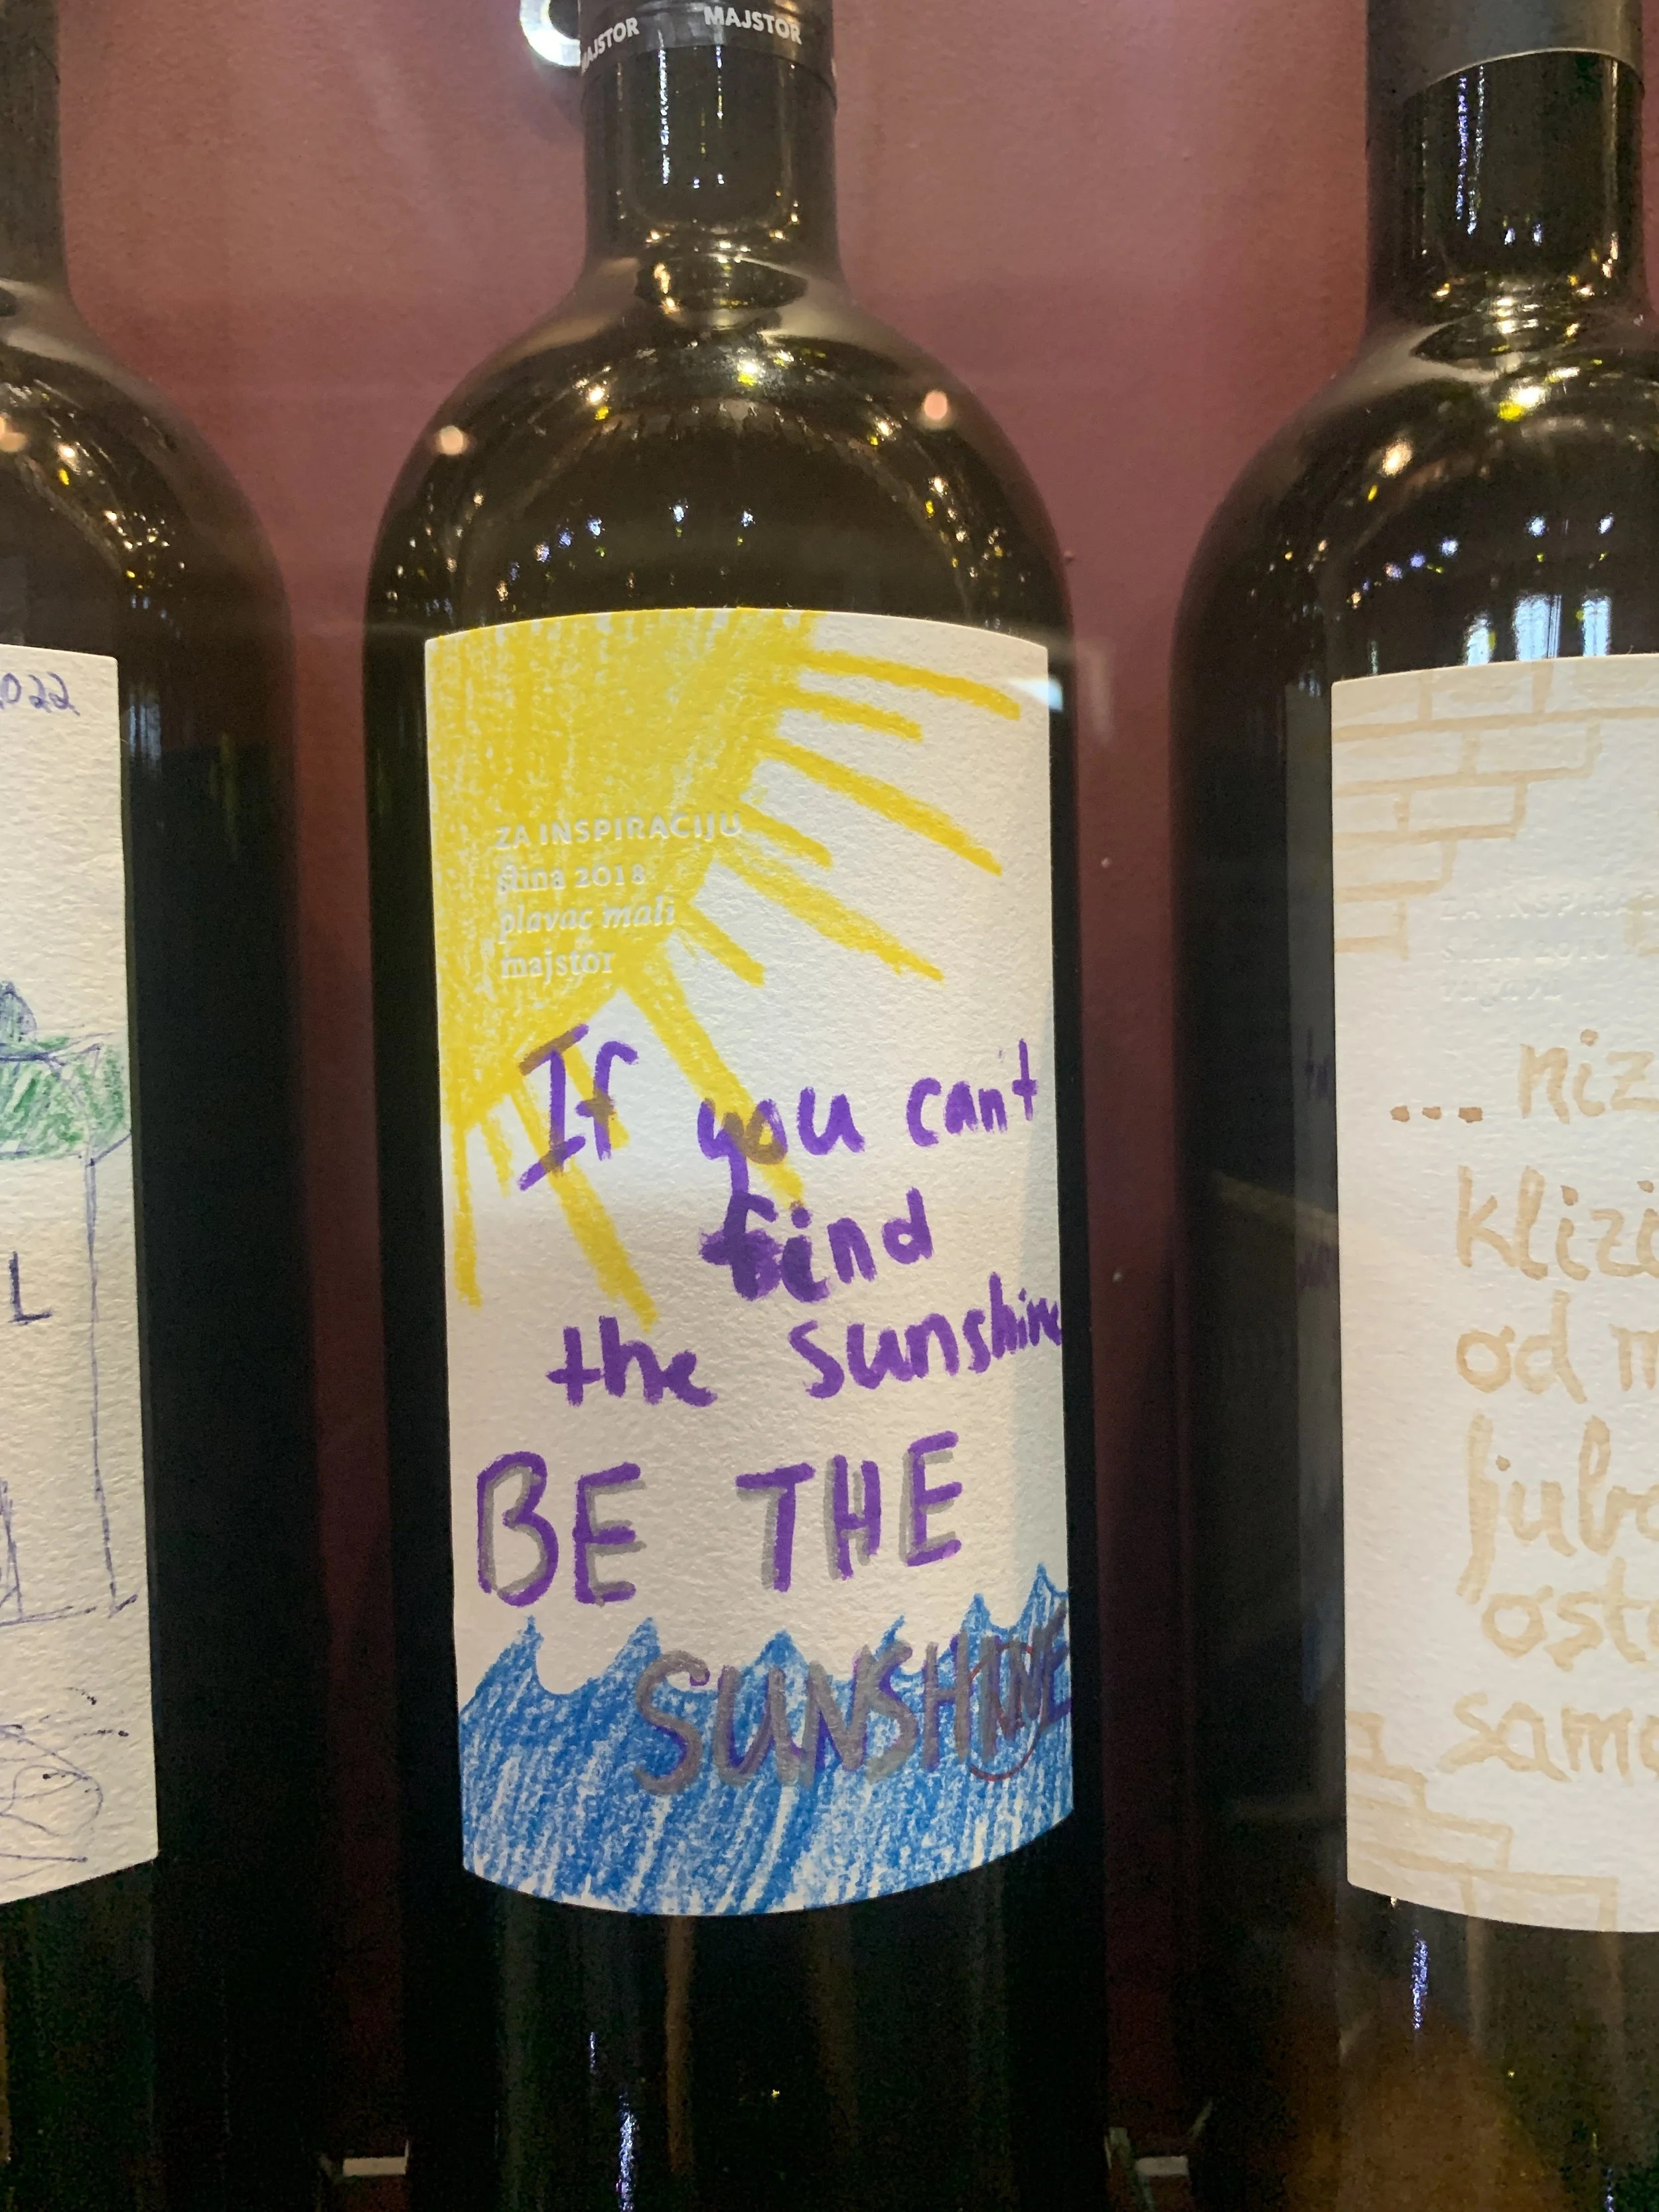 MAJSTOR
2022
L
ZA INSPIRACIJU
ština 2018
plavac mali
majstor
If you can't
find
the sunshine
BE THE
SUNSHINE
...niz
klizi
od m
ljub
osta
samo